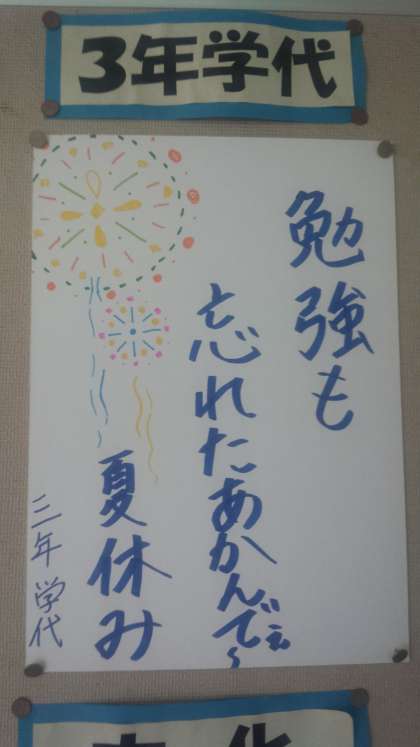 3年学代
勉強も
忘れたあかんでぇ~
夏休み
三年 学代